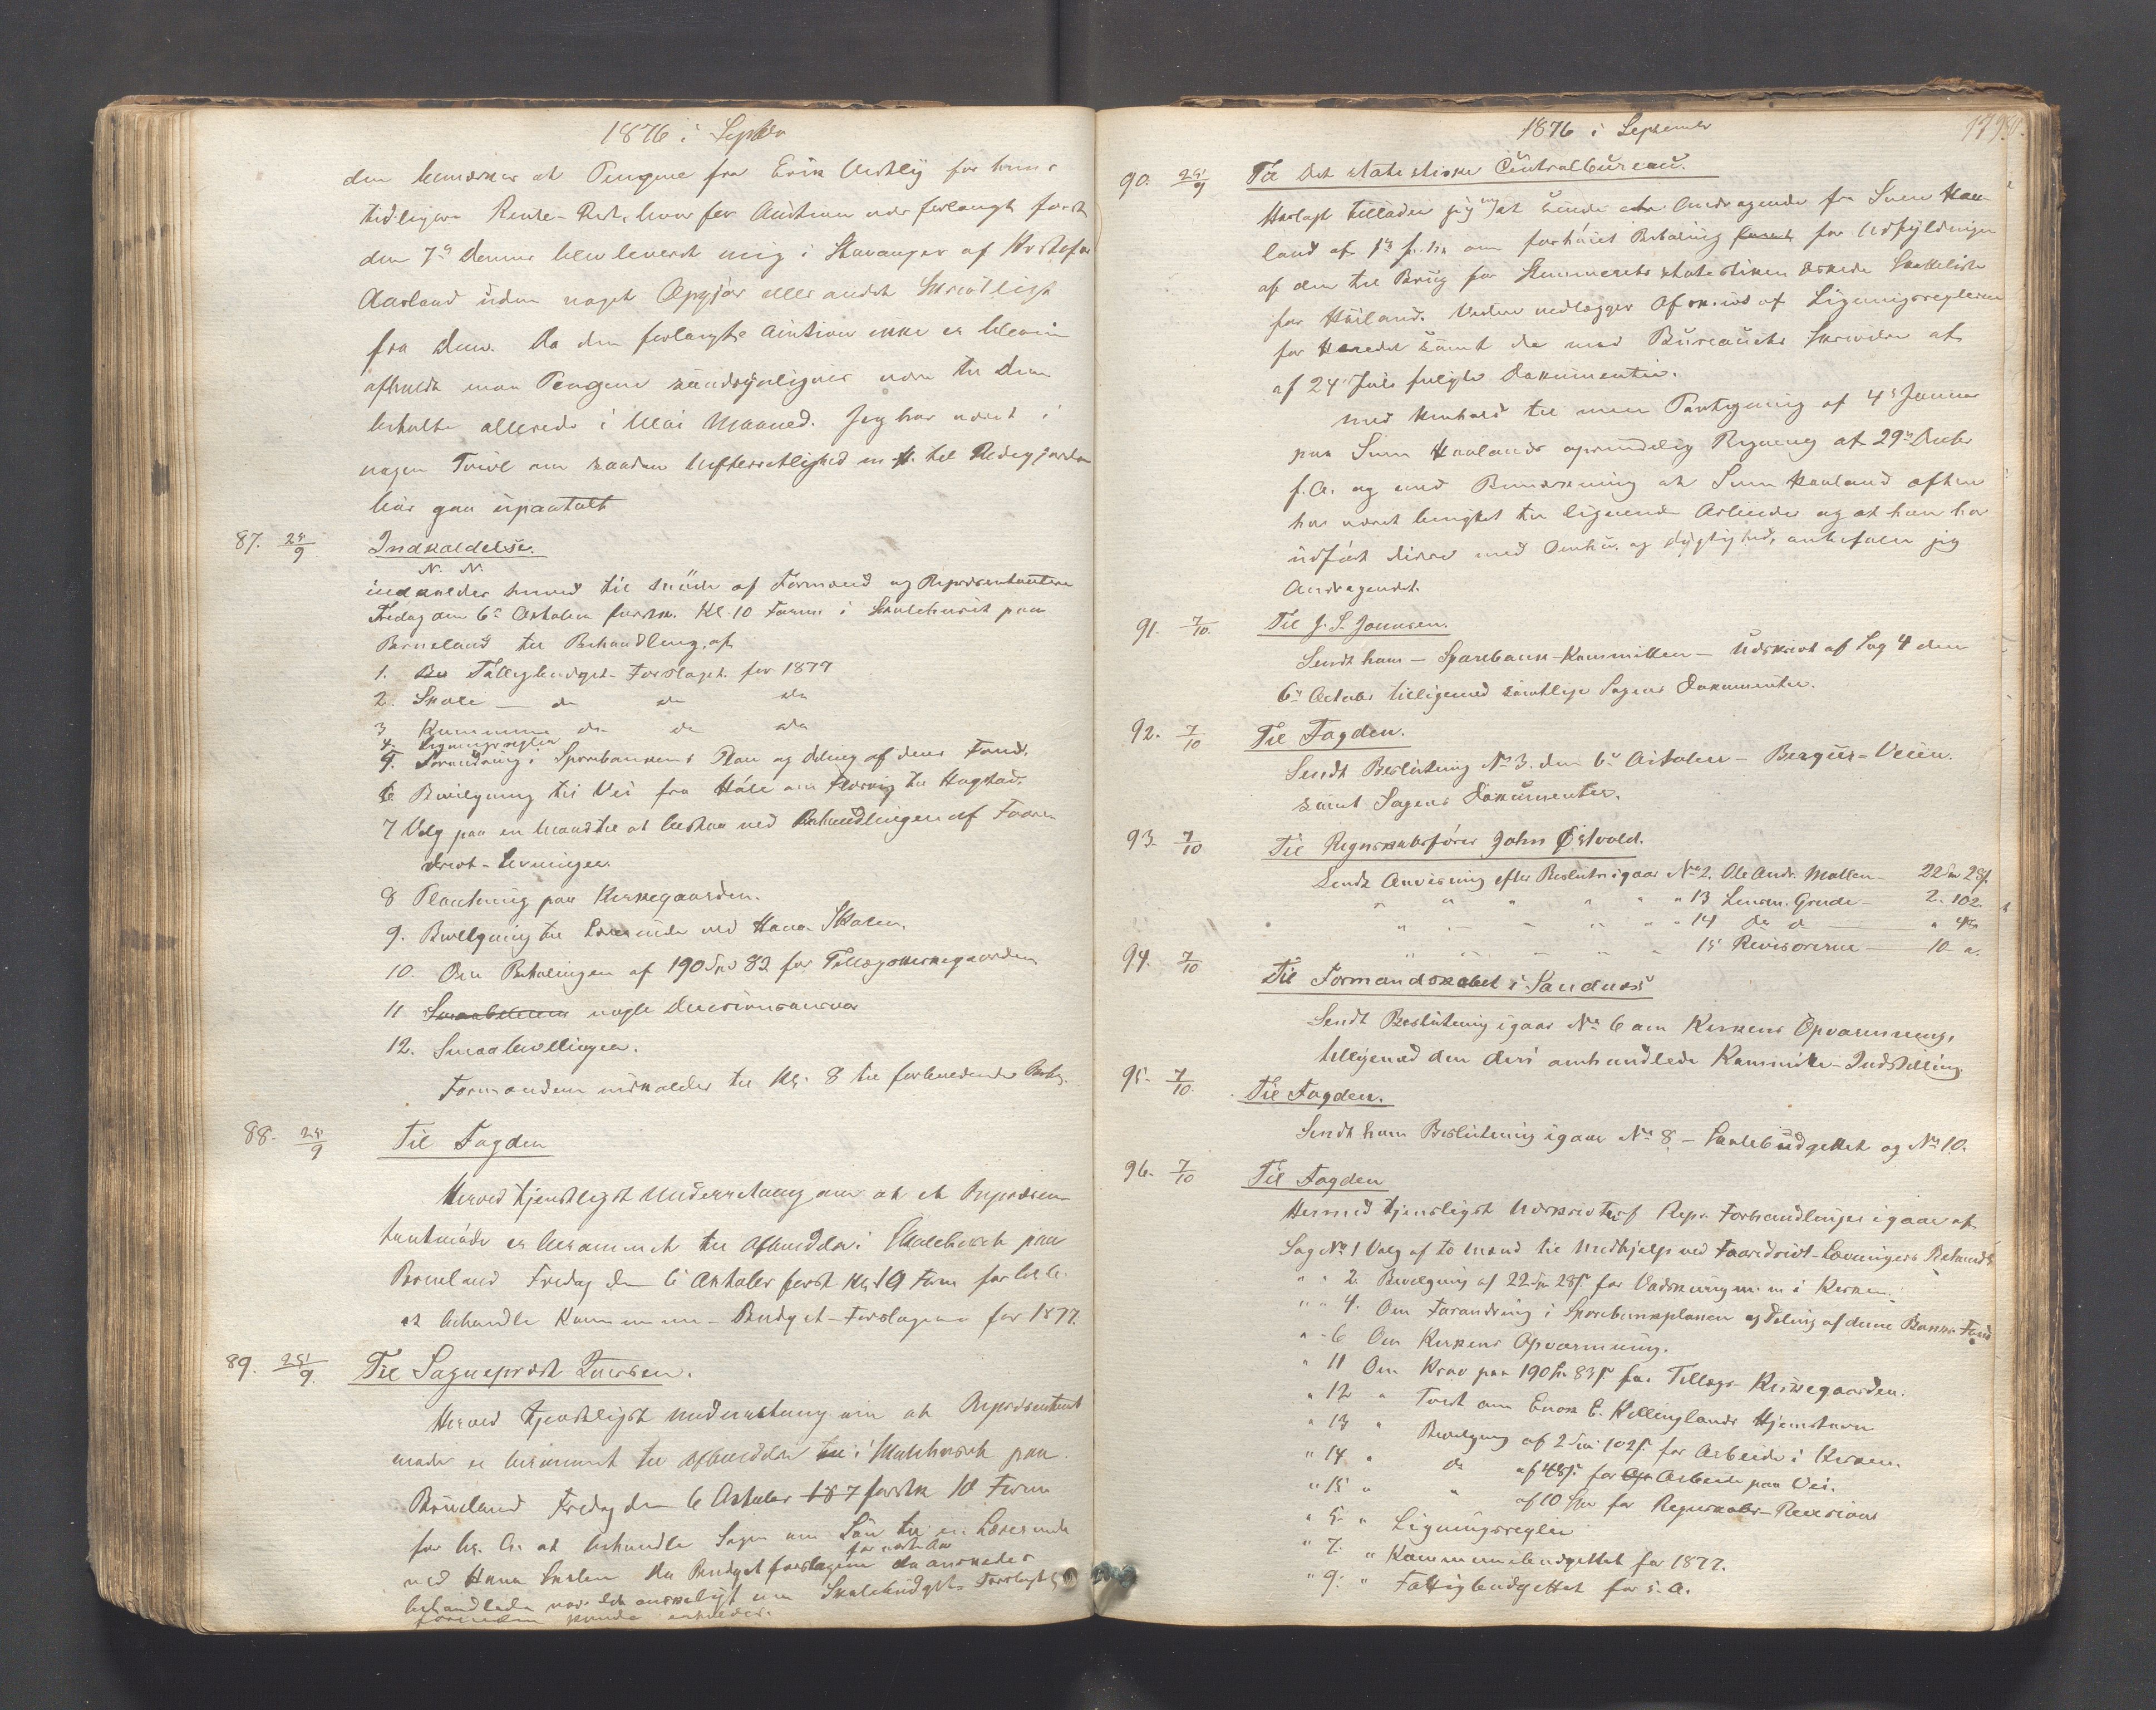 1876 i Septbr
den bemærkes at Pengene fra Erik Austly for hans
tidligere Rente-Rest, hvorfor Auction var forlangt først
den 7de dennes blev leveret mig i Stavanger af Kristofer
Aarland uden noget Opgjør eller andet Skriftligt
fra dem. Da den forlangte Auktion ikke er bleven
afholdt maa Pengene sandsynligvis være til Dem
betalte allerede i Mai Maaned. Jeg har været i
nogen Tvivl om saadan Uefterretlighed m. H. til Redegjørelse
bør gaa upaatalt
87. 25/9 Indkaldelse.
N. N.
indkaldes herved til Møde af Formænd og Repræsentantere
Fredag den 6te Oktober førstk. Kl. 10 Form i Skolehuset paa
Brueland til Behandling af
1. Fattigbudget-Forslaget for 1877
2. Skole — do do do
3 Kommune do do do
4. Ligningsregler
5. Forandring i Sparebankens Plan og Deling af dens Fond.
6 Bevilgning til Vei fra Høle til Hogstad.
7 Valg paa en Mand til at bistaa ved Behandlingen af Faare
drivt-Lovningen
8 Plantning paa Kirkegaarden.
9. Bevilgning til Lærerinde ved Hana Skolen.
10. Om Betalingen af 190 Spd 82 for Tillægskirkegaarden
11 nogle Decisionsansvar
12. Smaabevillinger.
Formændene indkaldes til Kl. 8 til forberedende Beh.
88. 25/9 Til Fogden
Herved tjenstligst Underretning om at et Repræsen-
tantmøde er berammet til Afholdelse i Skolehuset paa
Brueland Fredag den 6 Oktober først Kl 10 Form for bl. a.
at behandle Kommune-Budget-Forslagene for 1877.
89. 25/9. Til Sogneprest Iversen.
Herved tjenstligst Underretning om at Repræsentant
møde er berammet til Afholdelse i Skolehuset paa
Brueland Fredag den 6 Oktober førstk 10 Form
for bl. a. at behandle Sagen om Løn til en Lærerinde
ved Hana Skolen. Da Budgetforslagene for næste Aar da ønskedes
behandlede var det ønskeligt om Skolebudgets Forslaget
forinden kunde erholdes.
1876 i September
90. 25/9 Til Det statistiske Centralbureau.
Herlagt tillader jeg mig at sende Andragende fra Sven Haa-
land af 13 f. M. om forhøiet Betaling for Udfyldningen
af den til Brug for Skemmerets statistiken ønskede Skatteliste
for Høiland. Videre vedlægges Afskrivt af Ligningsreglerne
for Herredet samt de med Bureauets Skrivelse af
af 24 Juli fulgte Dokumenter.
Med Henhold til min Paategning af 4de Januar
paa Sven Haalands oprindelig Regning af 29de Decbr
f. A. og med Bemærkning at Sven Haaland ofte
har været benyttet til lignende Arbeider og at han har
udført disse med Omhu og Dygtighed, anbefaler jeg
Andragendet.
91. 7/10. Til J. S. Jonassen.
Sendt ham — Sparebank-Kommitteen — Udskrivt af Sag 4 den
6te Octobr tilligemed samtlige Sagens Dokumenter.
92. 7/10 Til Fogden.
Sendt Beslutning No 3. den 6te October — Bergus-Veien.
samt Sagens Dokumenter.
93. 7/10 Til Regnskabsfører John Østvold.
Sendt Anvisning efter Beslutn igaar No 2. Ole Andr. Mollen — 22 Spd 28 s.
" " " " " " 13 Lensm. Grude — 2. 102.
" " " " " " 14 Do d — " 48
" " " " " 15 Revisorerne — 10 - ".
94. 7/10 Til Formandskabet i Sandnæs
Sendt Beslutning igaar No 6 om Kirkens Opvarmning,
tilligemed den deri omhandlede Kommite-Indstilling.
95. 7/10. Til Fogden.
Sendt ham Beslutning igaar No 8 — Skolebudgettet og No 10.
96. 7/10 Til Fogden
Hermed tjenstligst Udskrivt af Repr. Forhandlinger igaar af
Sag No 1 Valg af to Mænd til Medhjælp ved Faaredrivt-Lovningens Behandl.
" " 2. Bevilgning af 22 Spd 28 s. for Vadskning m. m i Kirken.
" " 4. Om Forandring i Sparebankplanen og Deling af denne Banks Fond
" " 6 Om Kirkens Opvarmning.
" 11 Om Krav paa 190 Sp 83 s for Tillægs-Kirkegaarden.
" 12 " Tvist om Enok E. Kyllinglands Hjemstavn
" 13 " Bevilgning af 2 Spd 102 s. for Arbeide i Kirken.
" 14 " do af 48 s. for Arbeide paa Vei.
" 15 " " af 10 Spd for Regnskabs-Revision
" 5. " Ligningsregler
" 7. " Kommunebudgettet for 1877.
" 9. " Fattigbudgettet for s. A.